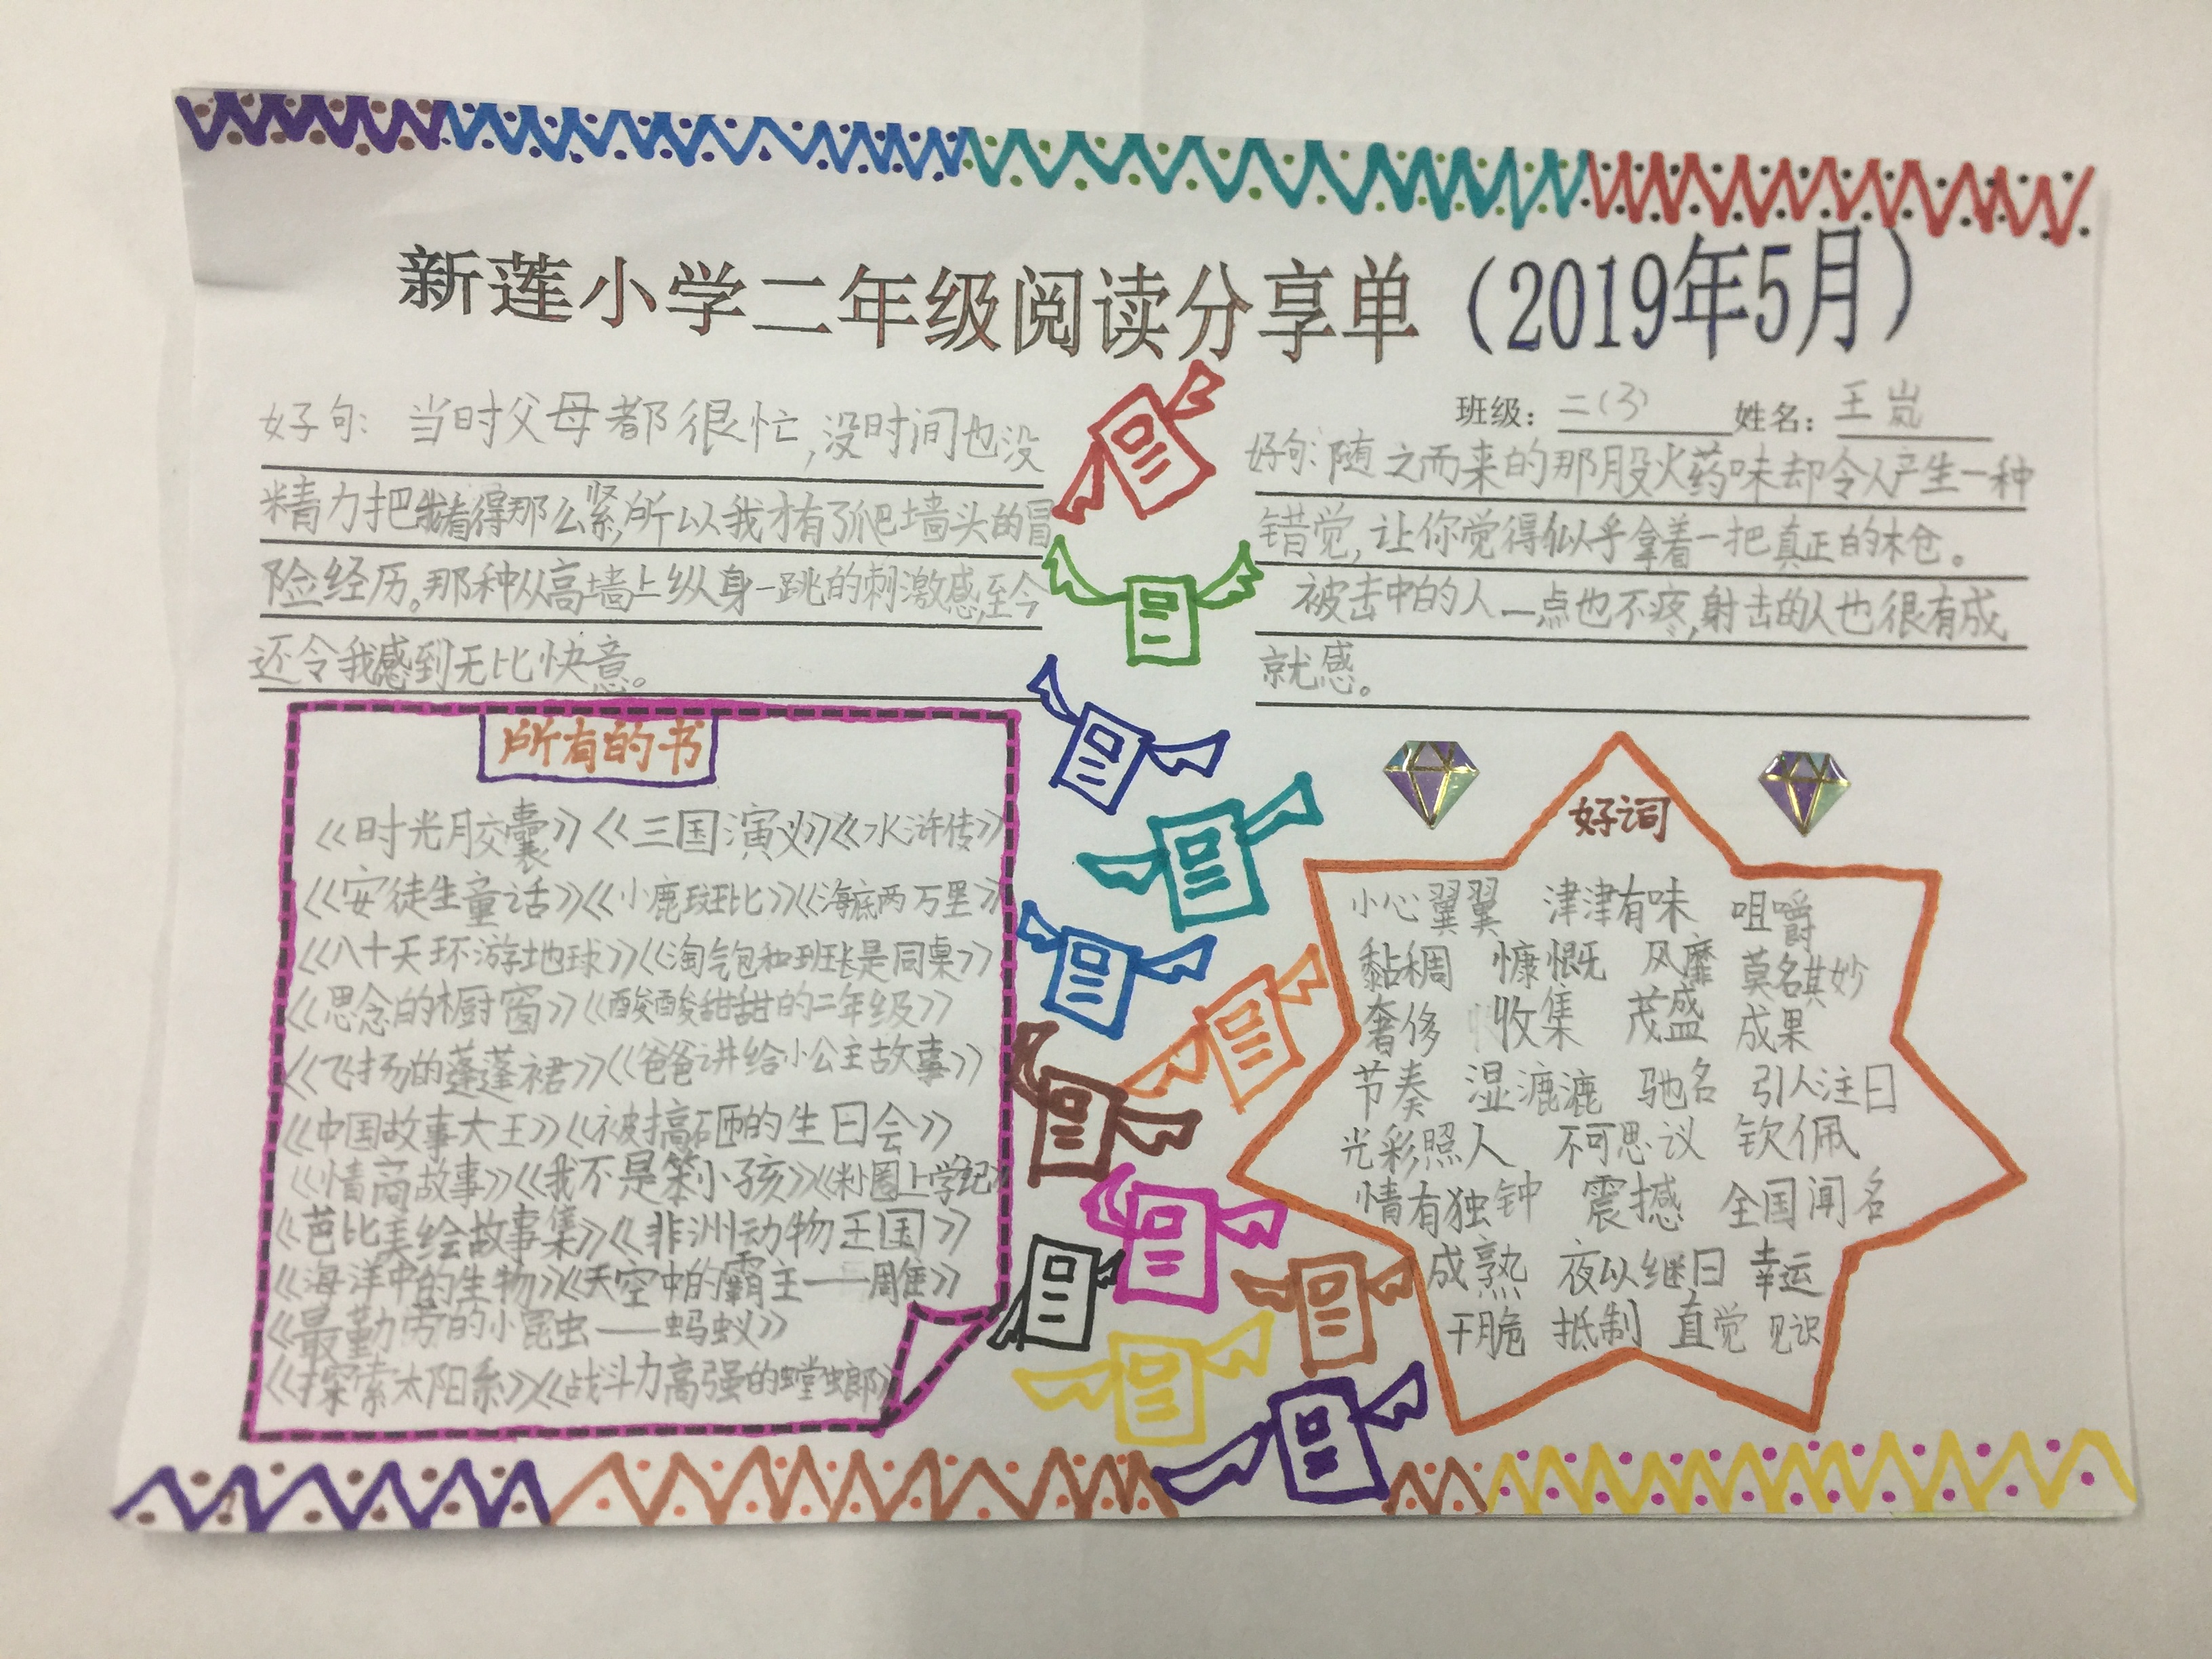 新莲小学二年级阅读分享单（2019年5月）
班级：二(3) 姓名：王岚
好句：当时父母都很忙,没时间也没
精力把我看得那么紧,所以我才有了爬墙头的冒
险经历。那种从高墙上纵身一跳的刺激感,至今
还令我感到无比快意。
好句：随之而来的那股火药味却令人产生一种
错觉,让你觉得似乎拿着一把真正的木仓。
被击中的人一点也不疼,射击的人也很有成
就感。
所有的书
《时光胶囊》《三国演义》《水浒传》
《安徒生童话》《小鹿斑比》《海底两万里》
《八十天环游地球》《淘气包和班长是同桌》
《思念的橱窗》《酸酸甜甜的二年级》
《飞扬的蓬蓬裙》《爸爸讲给小公主故事》
《中国故事大王》《被搞砸的生日会》
《情商故事》《我不是笨小孩》《米小圈上学记》
《芭比美绘故事集》《非洲动物王国》
《海洋中的生物》《天空中的霸主——雕》
《最勤劳的小昆虫——蚂蚁》
《探索太阳系》《战斗力高强的螳螂》
好词
小心翼翼 津津有味 咀嚼
黏稠 慷慨 风靡 莫名其妙
奢侈 收集 茂盛 成果
节奏 湿漉漉 驰名 引人注目
光彩照人 不可思议 钦佩
情有独钟 震撼 全国闻名
成熟 夜以继日 幸运
干脆 抵制 直觉 见识